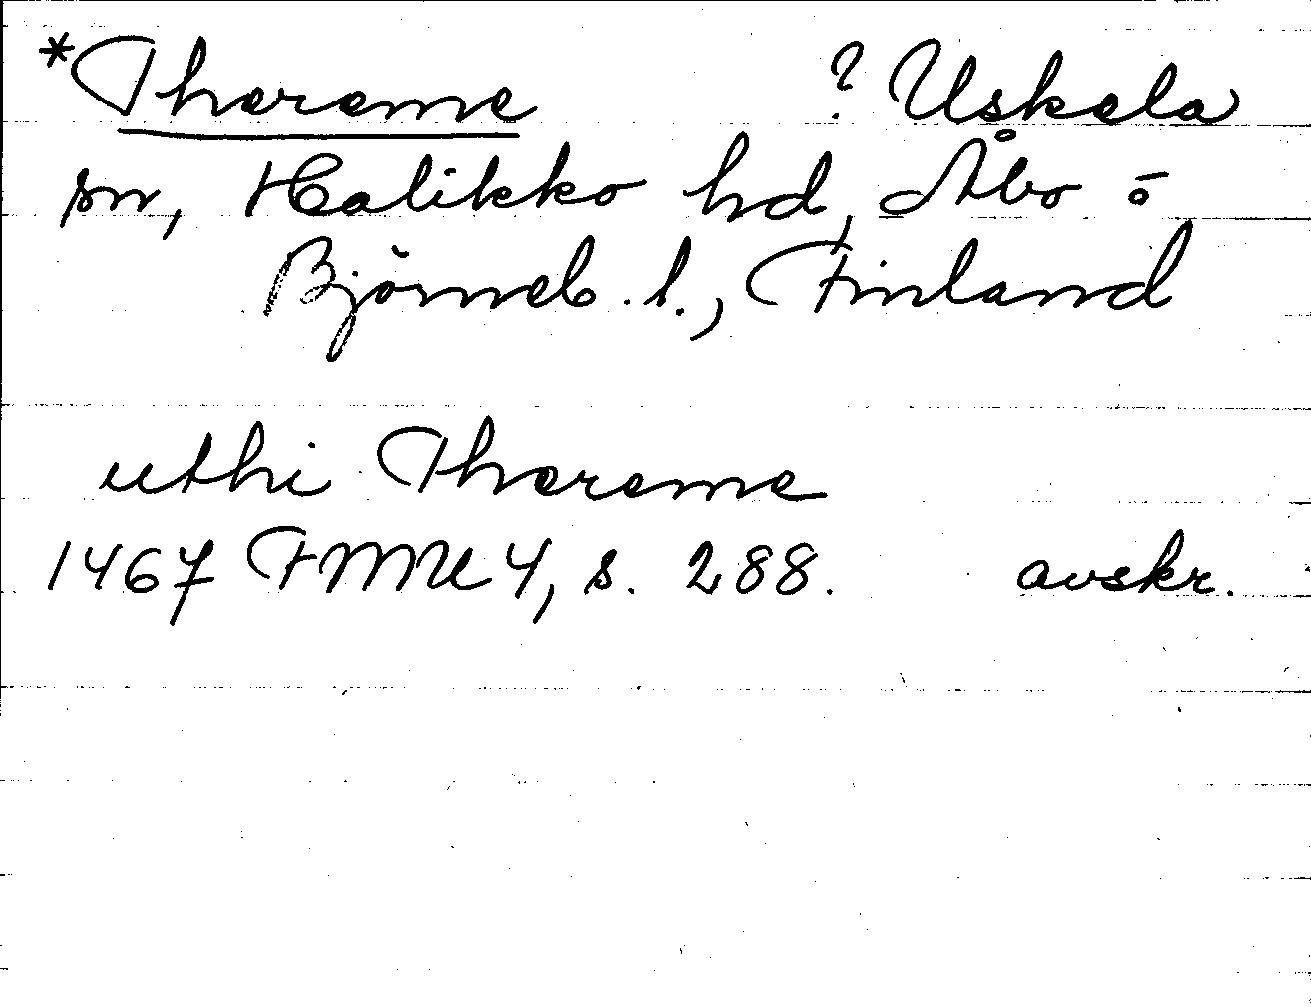 *Thereme ? Uskela
sn, Halikko hd, Åbo o
Björneb. l., Finland
uthi Thereme
1467 FMU 4, s. 288. avskr.